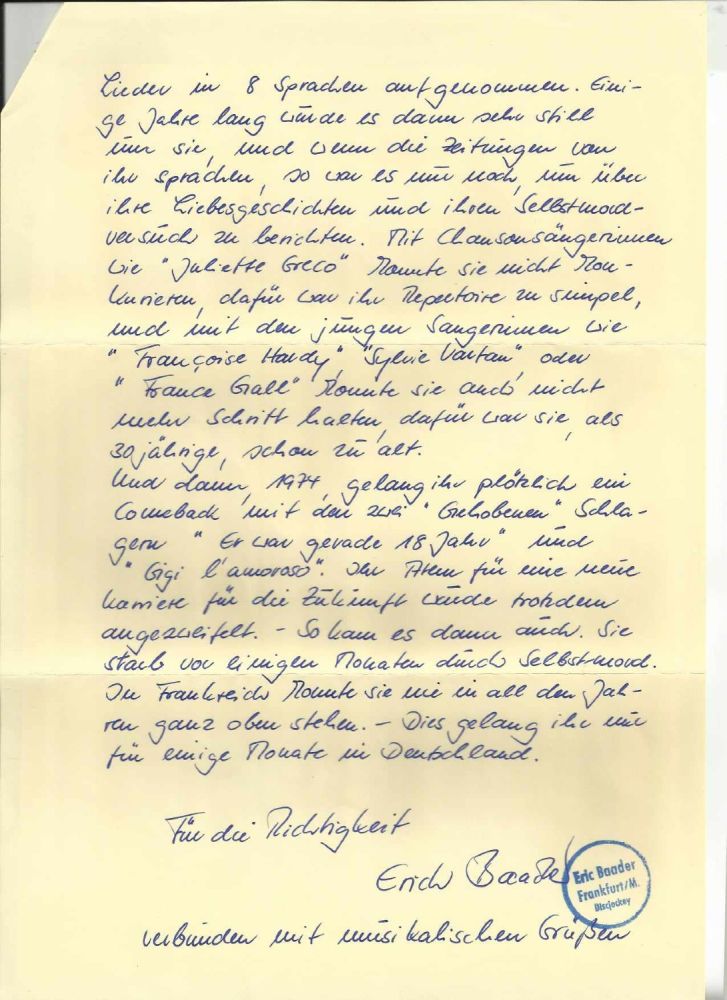 Lieder in 8 Sprachen aufgenommen. Eini-
ge Jahre lang wurde es dann sehr still
um sie, und wenn die Zeitungen von
ihr sprachen, so war es nur noch, um über
ihre Liebesgeschichten und ihren Selbstmord-
versuch zu berichten. Mit Chansonsängerinnen
wie "Juliette Greco" konnte sie nicht kon-
kurieren, dafür war ihr Repertoire zu simpel,
und mit den jungen Sängerinnen wie
"Françoise Hardy", "Sylvie Vartan", oder
"France Gall" konnte sie auch nicht
mehr Schritt halten, dafür war sie, als
30 jährige, schon zu alt.
Und dann, 1974, gelang ihr plötzlich ein
Comeback mit den zwei "Gehobenen" Schla-
gern "Er war gerade 18 Jahr" und
"Gigi l'amoroso". Ihr Atem für eine neue
Karriere für die Zukunft wurde trotzdem
angezweifelt. – So kam es dann auch. Sie
starb vor einigen Monaten durch Selbstmord.
In Frankreich konnte sie nie in all den Jah-
ren ganz oben stehen. – Dies gelang ihr nur
für einige Monate in Deutschland.
Für die Richtigkeit
Erich Baader
Eric Baader
Frankfurt/M.
Discjockey
verbunden mit musikalischen Grüßen